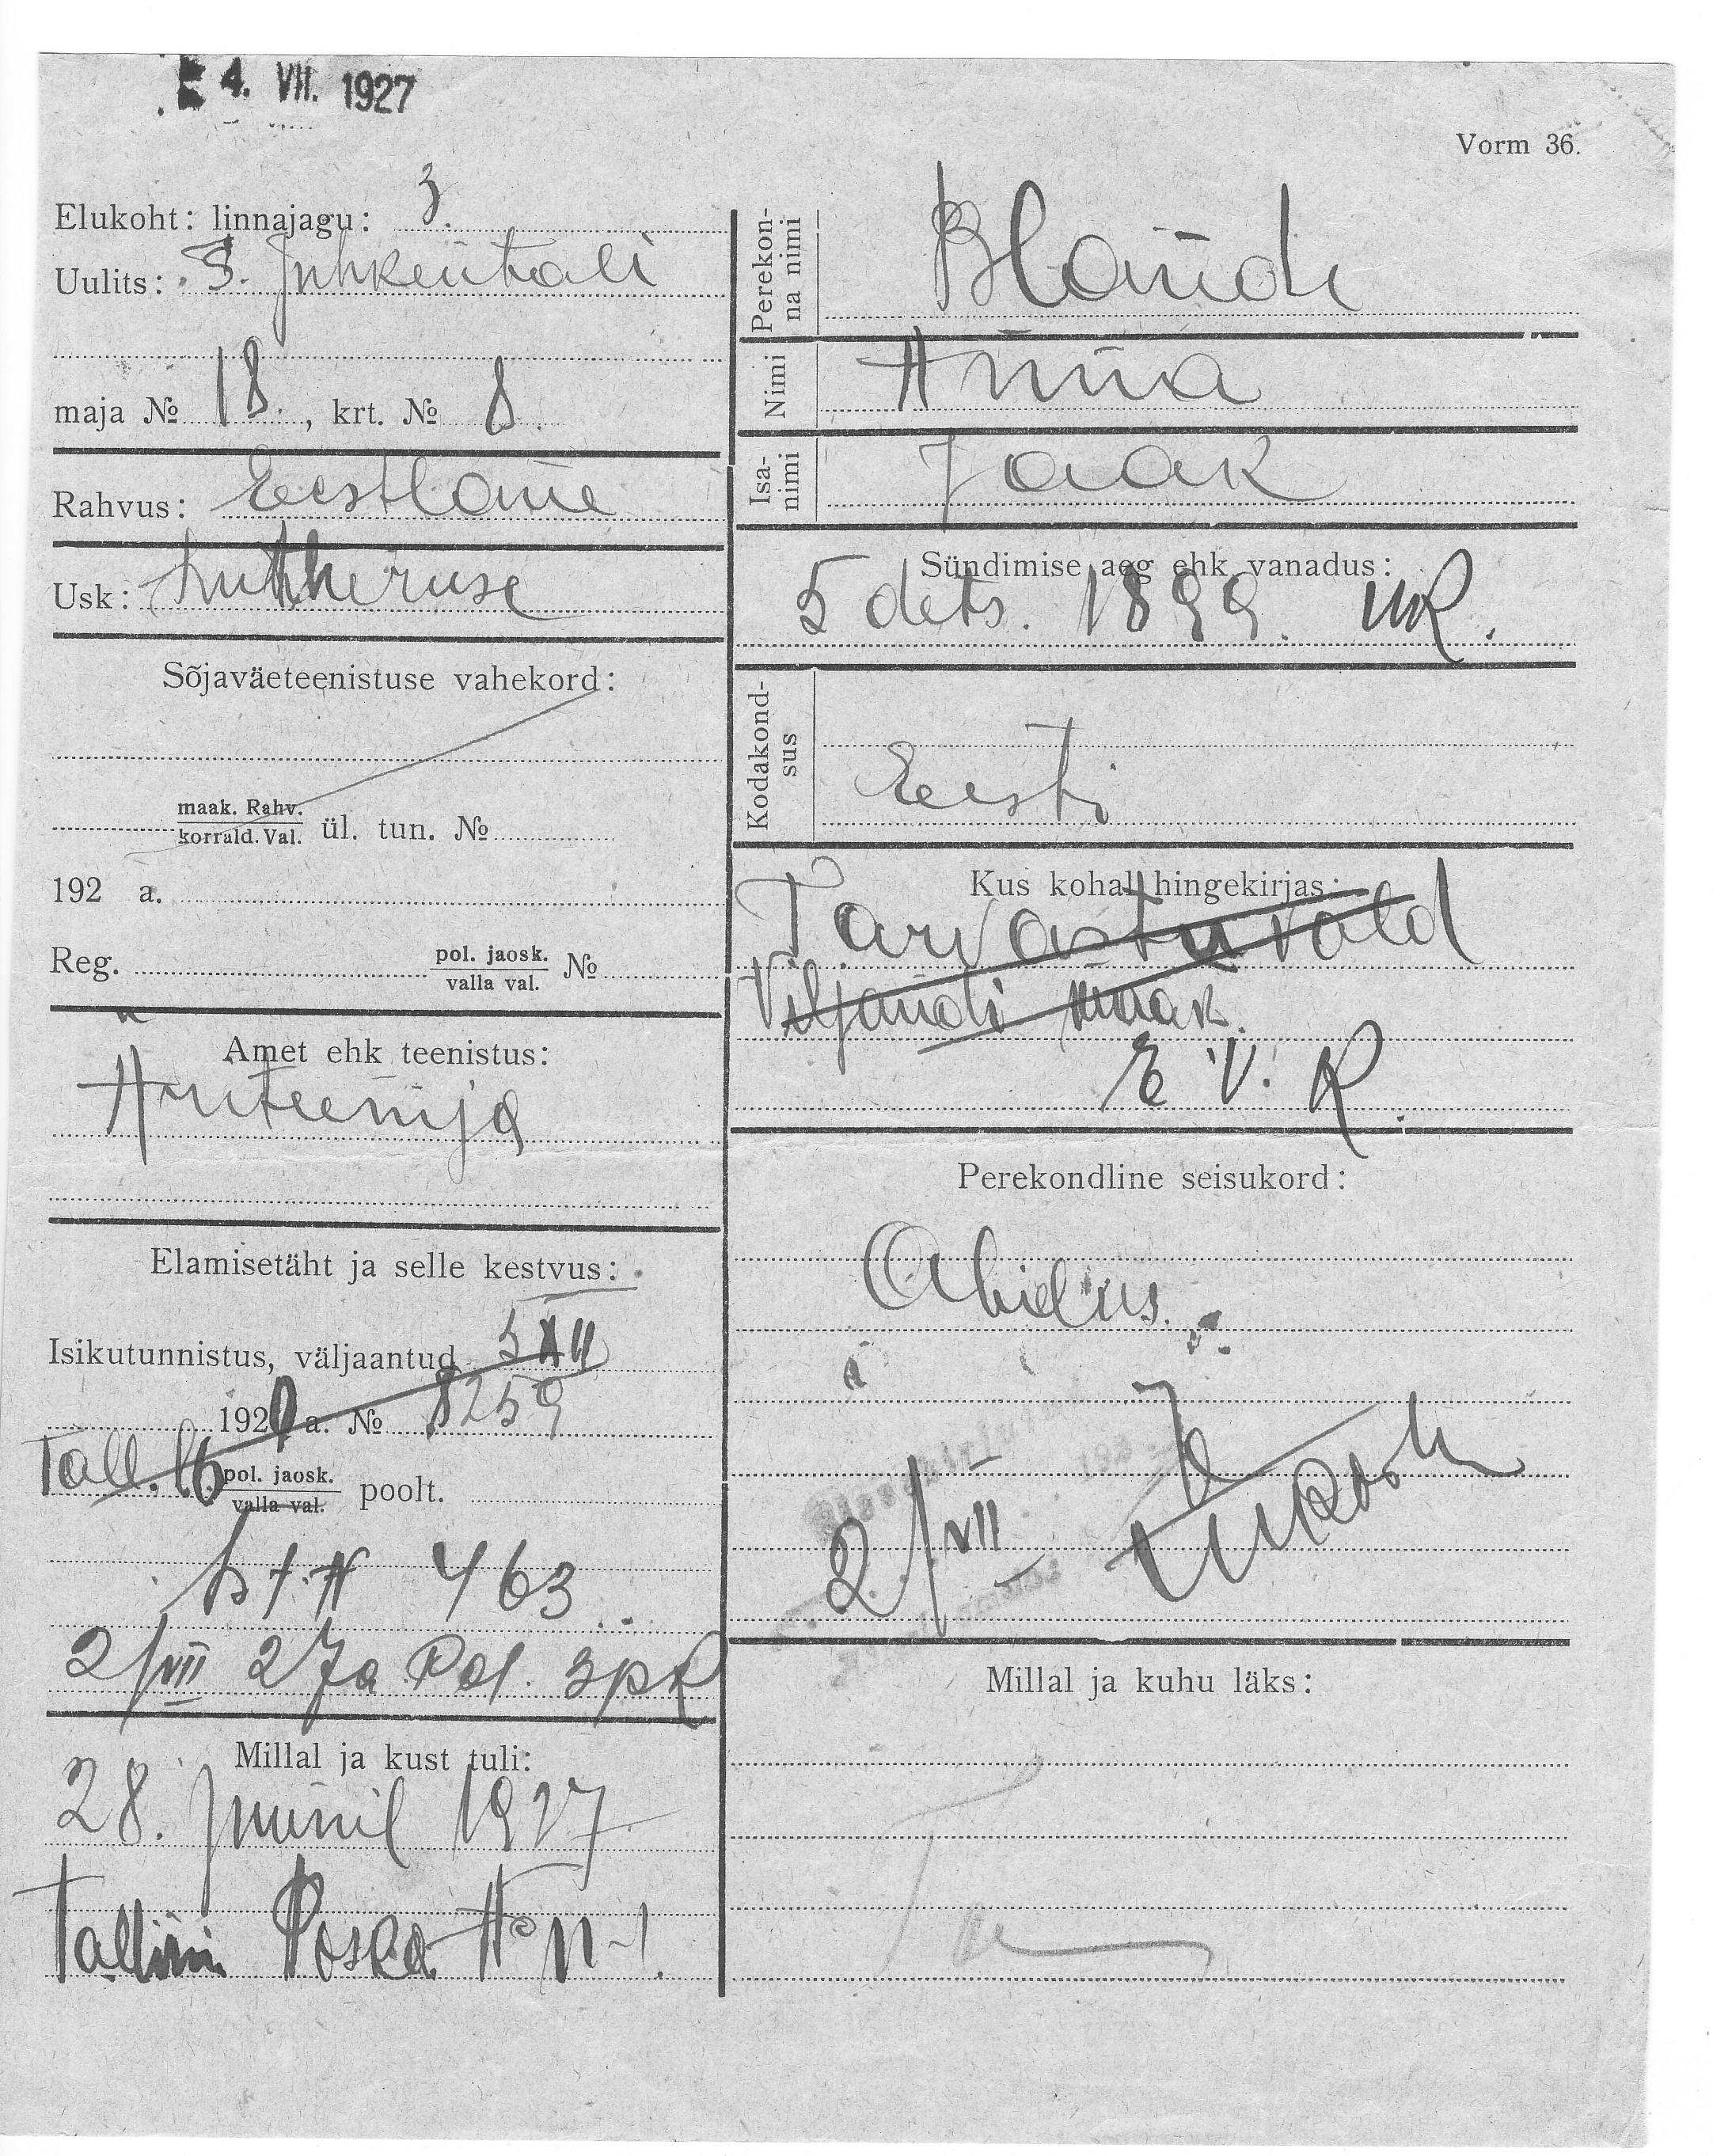 4. VII. 1927
Vorm 36.
Elukoht: linnajagu: 3.
Uulits: S. Juhkentali
maja № 18., krt. № 8.
Rahvus: Eestlane
Usk: Lutheruse
Sõjaväeteenistuse vahekord:
maak. Rahv.
korrald. Val. ül. tun. №
192 a.
Reg. pol. jaosk.
valla val. №
Amet ehk teenistus:
Ametteenija
Elamisetäht ja selle kestvus:
Isikutunnistus, väljaantud 5 XII
192 a. № 8259
Tall. pol. jaosk.
valla val. poolt.
№ 463
2/VII 27a Pol. 3
Millal ja kust tuli:
28. juunil 1927
Tallinn Poska 11-1.
Perekon-
na nimi
Blande
Nimi
Anna
Isa-
nimi
Jaak
Sündimise aeg ehk vanadus:
5 dets. 1899.
Kodakond-
sus
Eesti
Kus kohal hingekirjas:
Tarvastu vald
Viljandi maak.
E. V. R.
Perekondline seisukord:
Abielus.
2/VII
Millal ja kuhu läks: